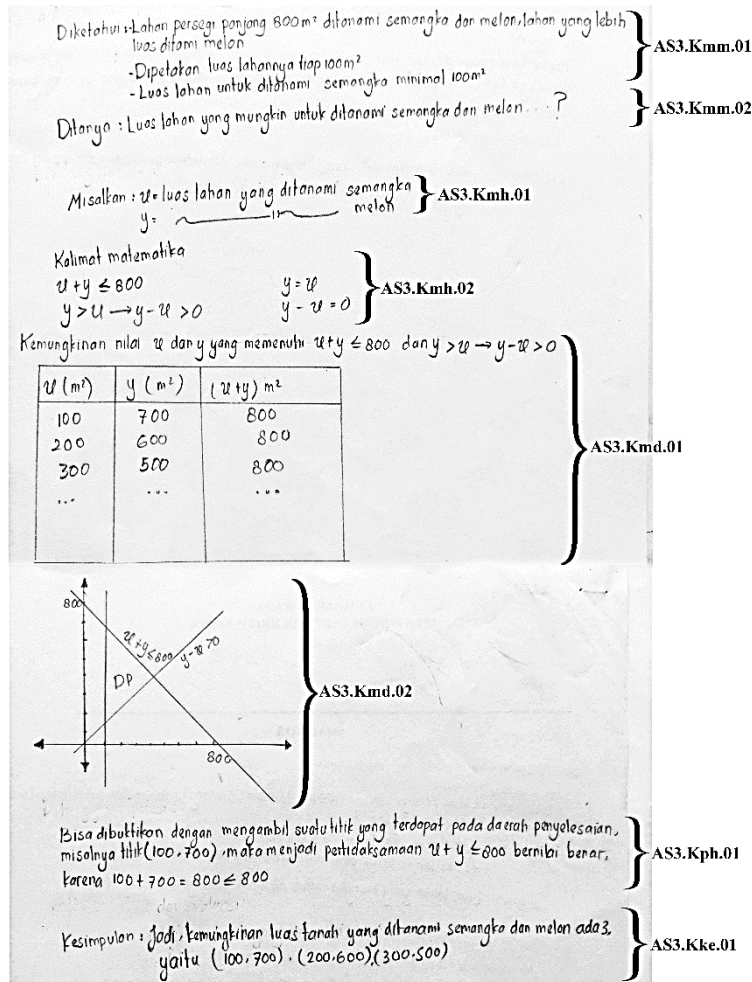 Diketahui :- Lahan persegi panjang 800 m² ditanami semangka dan melon, lahan yang lebih
luas ditami melon
AS3.Kmm.01
- Dipetakan luas lahannya tiap 100m²
- Luas lahan untuk ditanami semangka minimal 100m²
Ditanya : Luas lahan yang mungkin untuk ditanami semangka dan melon ... ?
AS3.Kmm.02
Misalkan : x = luas lahan yang ditanami semangka
AS3.Kmh.01
y = —— 11 —— melon
Kalimat matematika
x + y ≤ 800 y = x
AS3.Kmh.02
y > x → y - x > 0 y - x = 0
Kemungkinan nilai x dan y yang memenuhi x + y ≤ 800 dan y > x → y - x > 0
x (m²) y (m²) (x+y) m²
100 700 800
200 600 800
AS3.Kmd.01
300 500 800
... ... ...
800
x + y ≤ 800 y - x > 0
DP
AS3.Kmd.02
800
Bisa dibuktikan dengan mengambil suatu titik yang terdapat pada daerah penyelesaian,
misalnya titik (100,700), maka menjadi pertidaksamaan x + y ≤ 800 bernilai benar,
AS3.Kph.01
karena 100 + 700 = 800 ≤ 800
Kesimpulan : Jadi, kemungkinan luas tanah yang ditanami semangka dan melon ada 3,
AS3.Kke.01
yaitu (100,700), (200,600), (300,500)